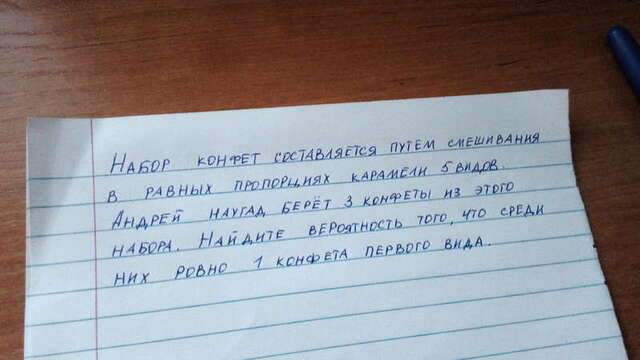 НАБОР КОНФЕТ СОСТАВЛЯЕТСЯ ПУТЕМ СМЕШИВАНИЯ
В РАВНЫХ ПРОПОРЦИЯХ КАРАМЕЛИ 5 ВИДОВ.
АНДРЕЙ НАУГАД БЕРЁТ 3 КОНФЕТЫ ИЗ ЭТОГО
НАБОРА. НАЙДИТЕ ВЕРОЯТНОСТЬ ТОГО, ЧТО СРЕДИ
НИХ РОВНО 1 КОНФЕТА ПЕРВОГО ВИДА.